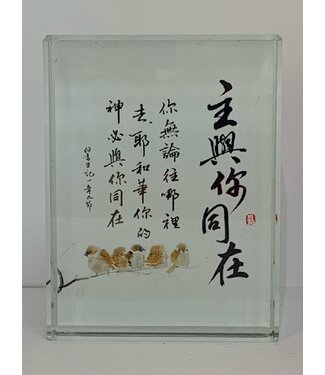 主與你同在
你無論往哪裡
去,耶和華你的
神必與你同在
約書亞記一章九節